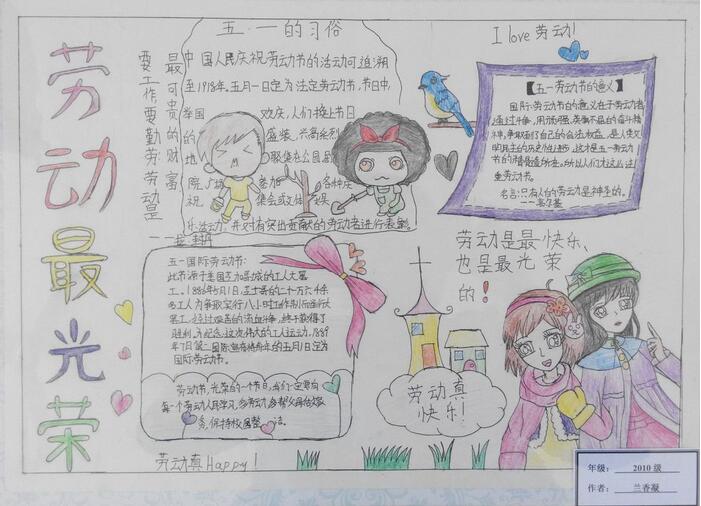 劳动最光荣
最可贵的财富
要工作要勤劳:劳动是
五·一的习俗
中国人民庆祝劳动节的活动可追溯
至1918年.五月一日定为法定劳动节,节日中,
举国欢庆,人们换上节日
的盛装,兴高采烈
地聚集在公园剧
院,广场参加各种庆
祝集会或文体娱
乐活动,并对有突出贡献的劳动者进行表彰。
I love 劳动!
【五一劳动节的意义】
国际劳动节的意义在于劳动者
通过斗争,用顽强、英勇不屈的奋斗精
神,争取到了自己的合法权益,是人类文
明民主的历史性进步,这才是五一劳动
节的精髓所在。所以人们才这么注
重劳动节。
名言:只有人的劳动才是神圣的。
——高尔基
五一国际劳动节:
此节源于美国芝加哥城的工人大罢
工,1886年5月1日,芝加哥的二十一万六千余
名工人为争取实行八小时工作制而举行大
罢工,经过艰苦的流血斗争,终于获得了
胜利。为纪念这次伟大的工人运动,1889
年7月第二国际宣布将每年的五月1日定为
国际劳动节。
劳动节,光荣的一个节日,我们一定要向
每一个劳动人民学习,多劳动,多帮父母做家
务,保持校园整洁。
劳动真Happy!
劳动是最快乐、
也是最光荣
的!
劳动真
快乐!
年级: 2010级
作者: 兰香凝